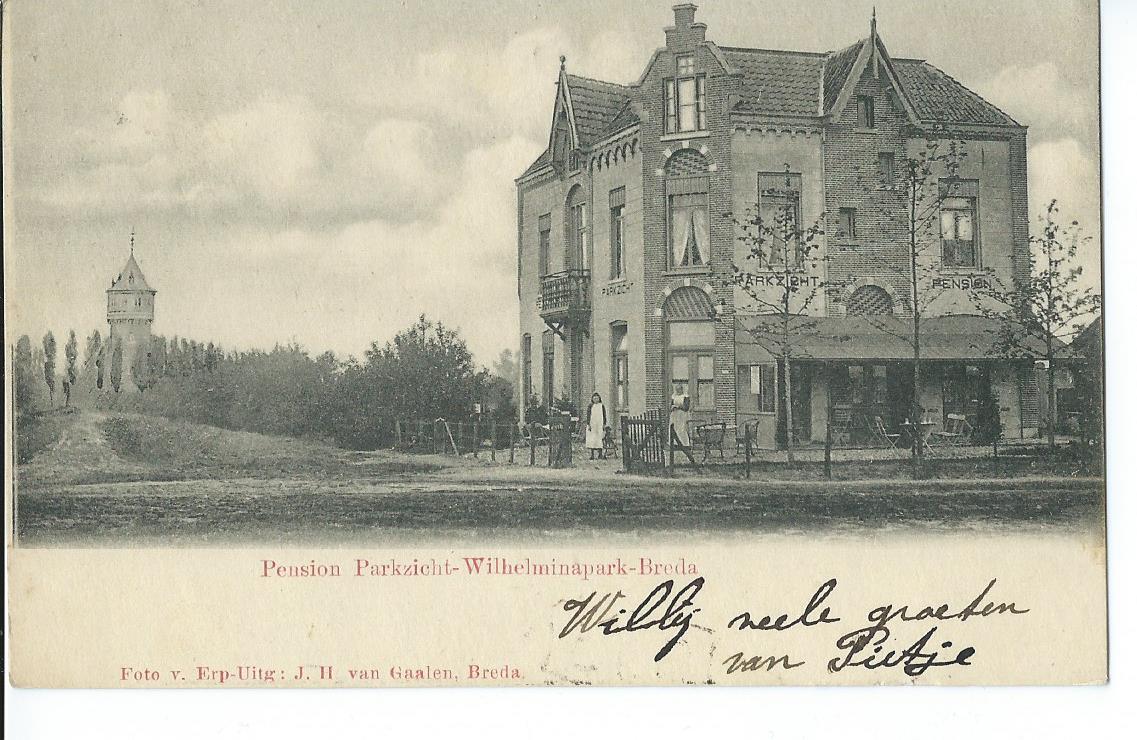 PARKZICHT
PARKZICHT
PENSION
Pension Parkzicht-Wilhelminapark-Breda
Willy veele groeten
van Pietje
Foto v. Erp-Uitg: J. H van Gaalen, Breda